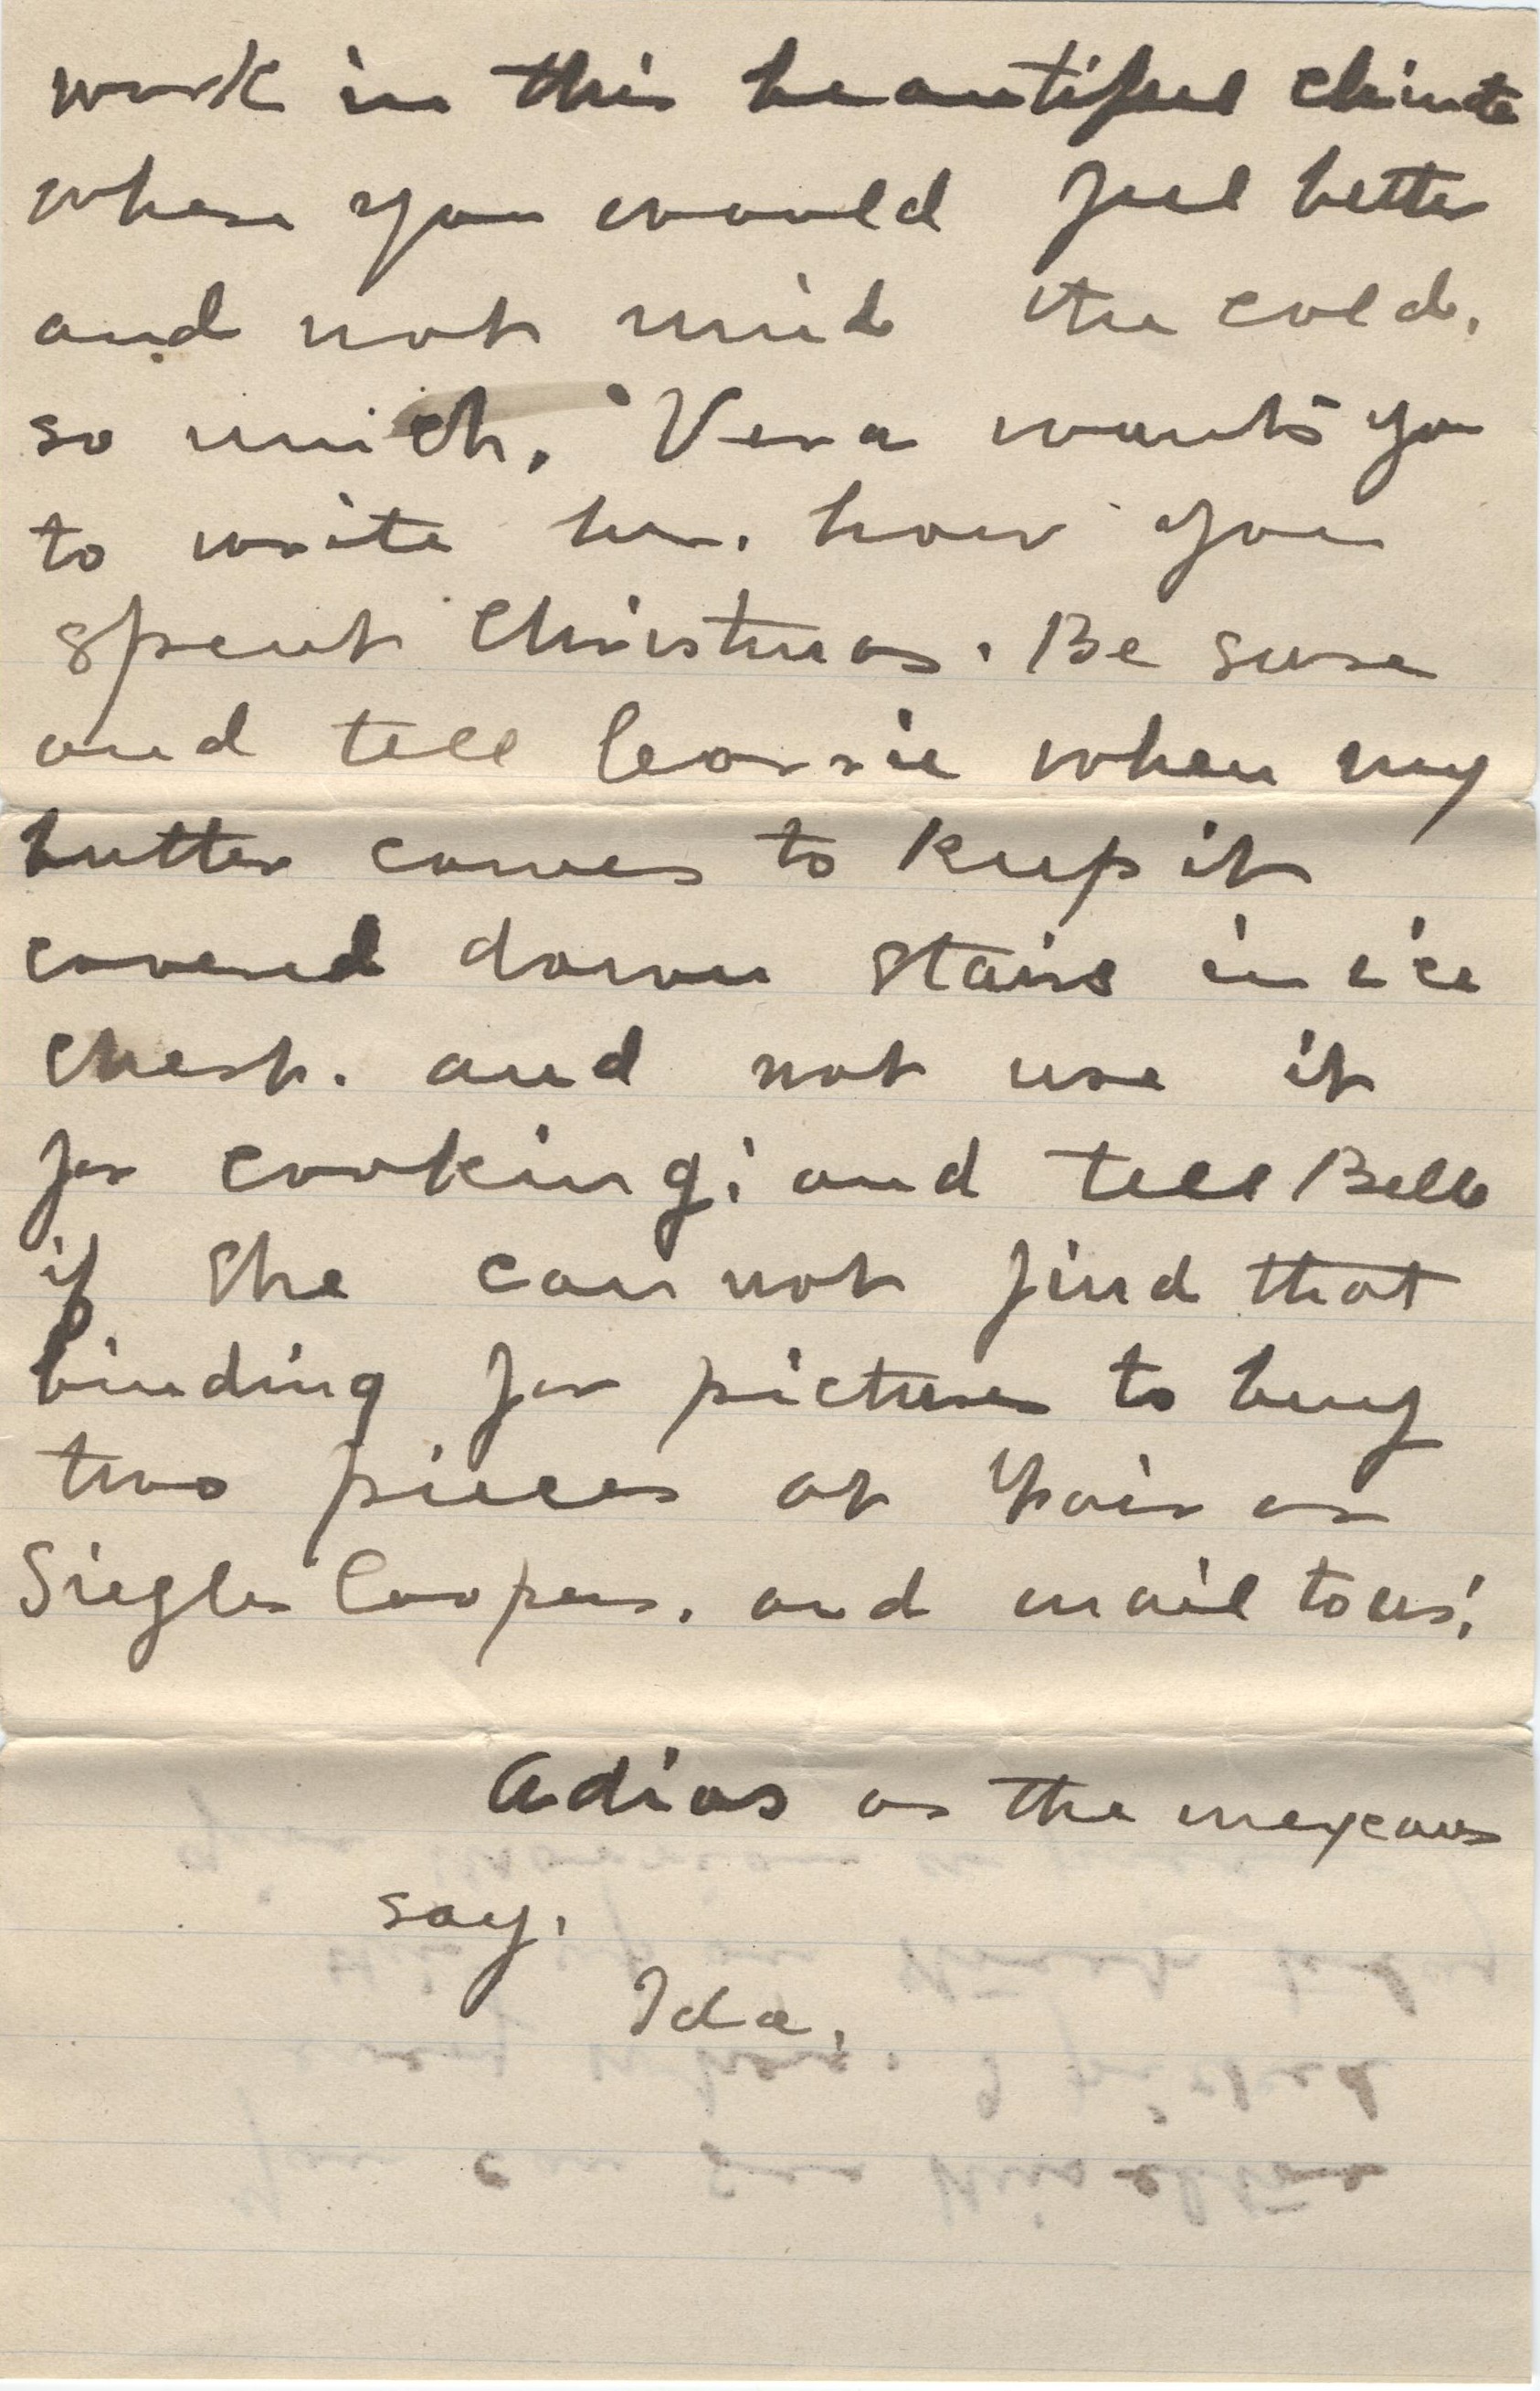 work in this beautiful climate
where you would feel better
and not mind the cold.
so much. Vera wants you
to write her. how you
spent Christmas. Be sure
and tell Cassie when my
butter comes to keep it
covered down stairs in ice
chest. and not use it
for cooking; and tell Belle
if she can not find that
binding for pictures to buy
two pieces at Fair or
Siegle Coopers. and mail to us;
Adios as the mexcans
say.
Ida.